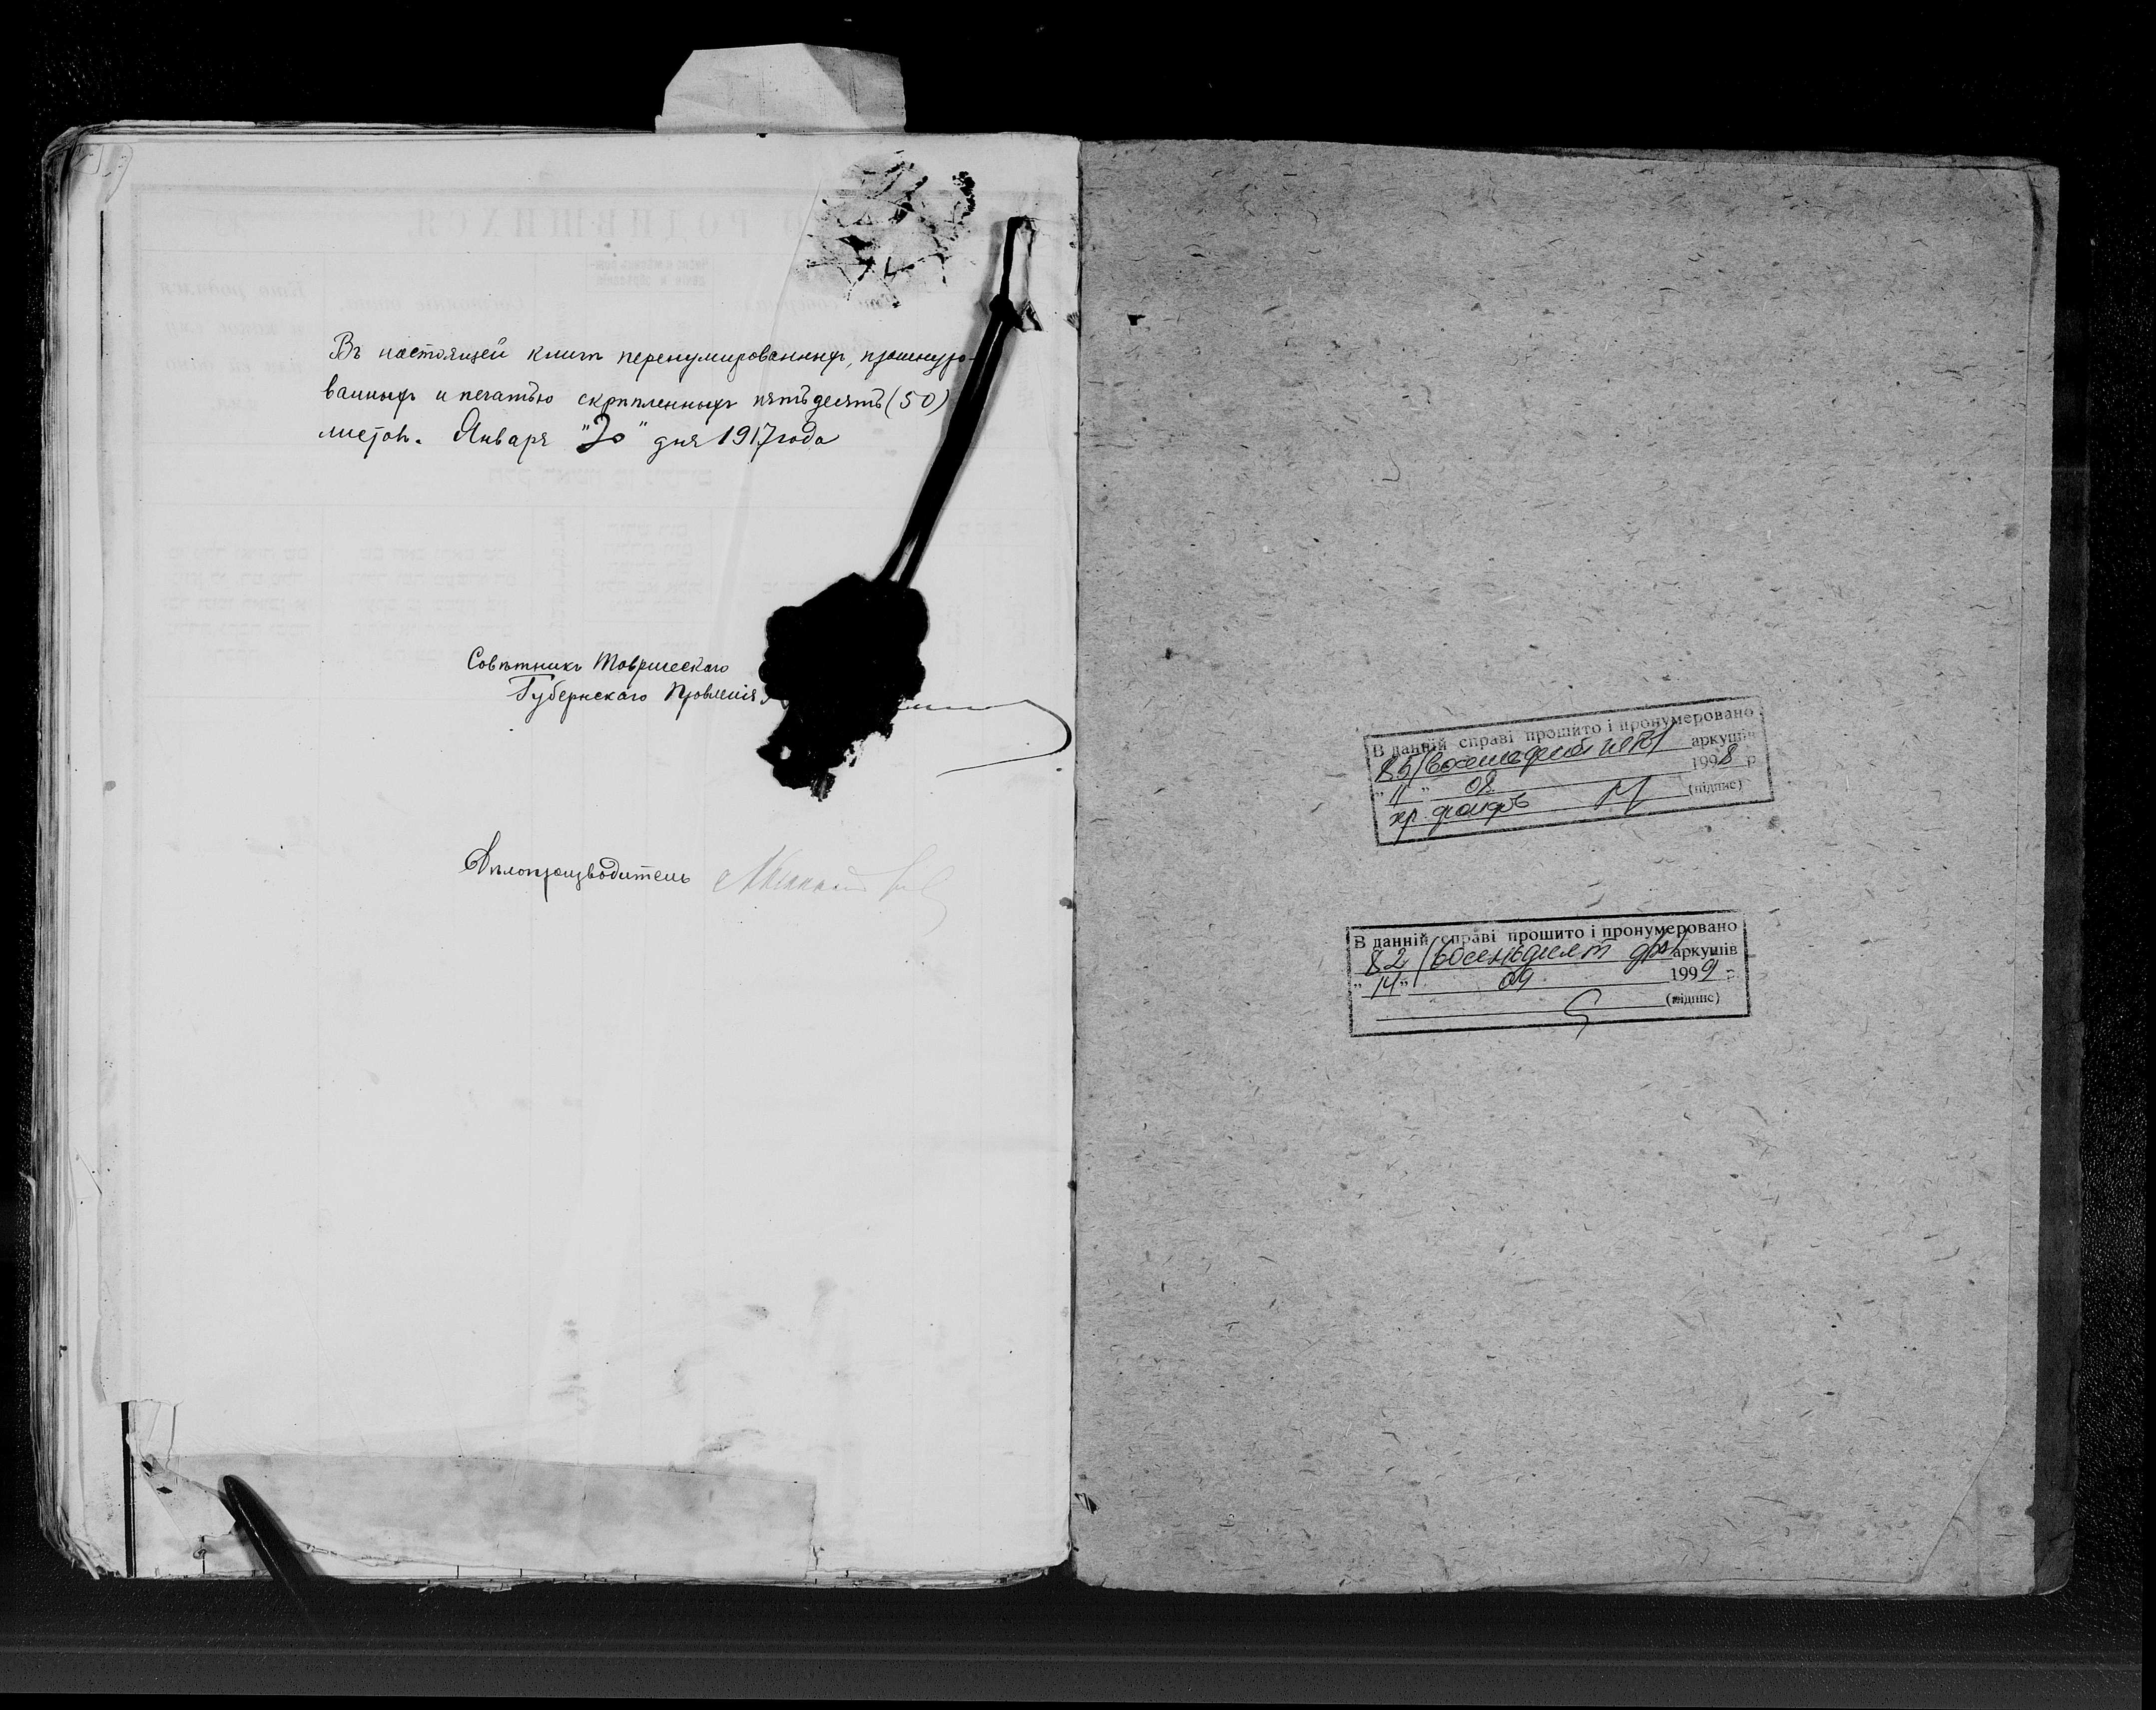 Въ настоящей книгѣ перенумерованныхъ, прошнуро-
ванныхъ и печатью скрѣпленныхъ пятьдесятъ (50)
листовъ. Января "20" дня 1917 года
Совѣтникъ Таврическаго
Губернскаго Правленія
Дѣлопроизводитель
В данній справі прошито і пронумеровано
85 (восемьдесят пять) аркушів
"11" 08 1998 р
хр. фондів (підпис)
В данній справі прошито і пронумеровано
82 (восемьдесят два) аркушів
"14" 09 1999 р
(підпис)